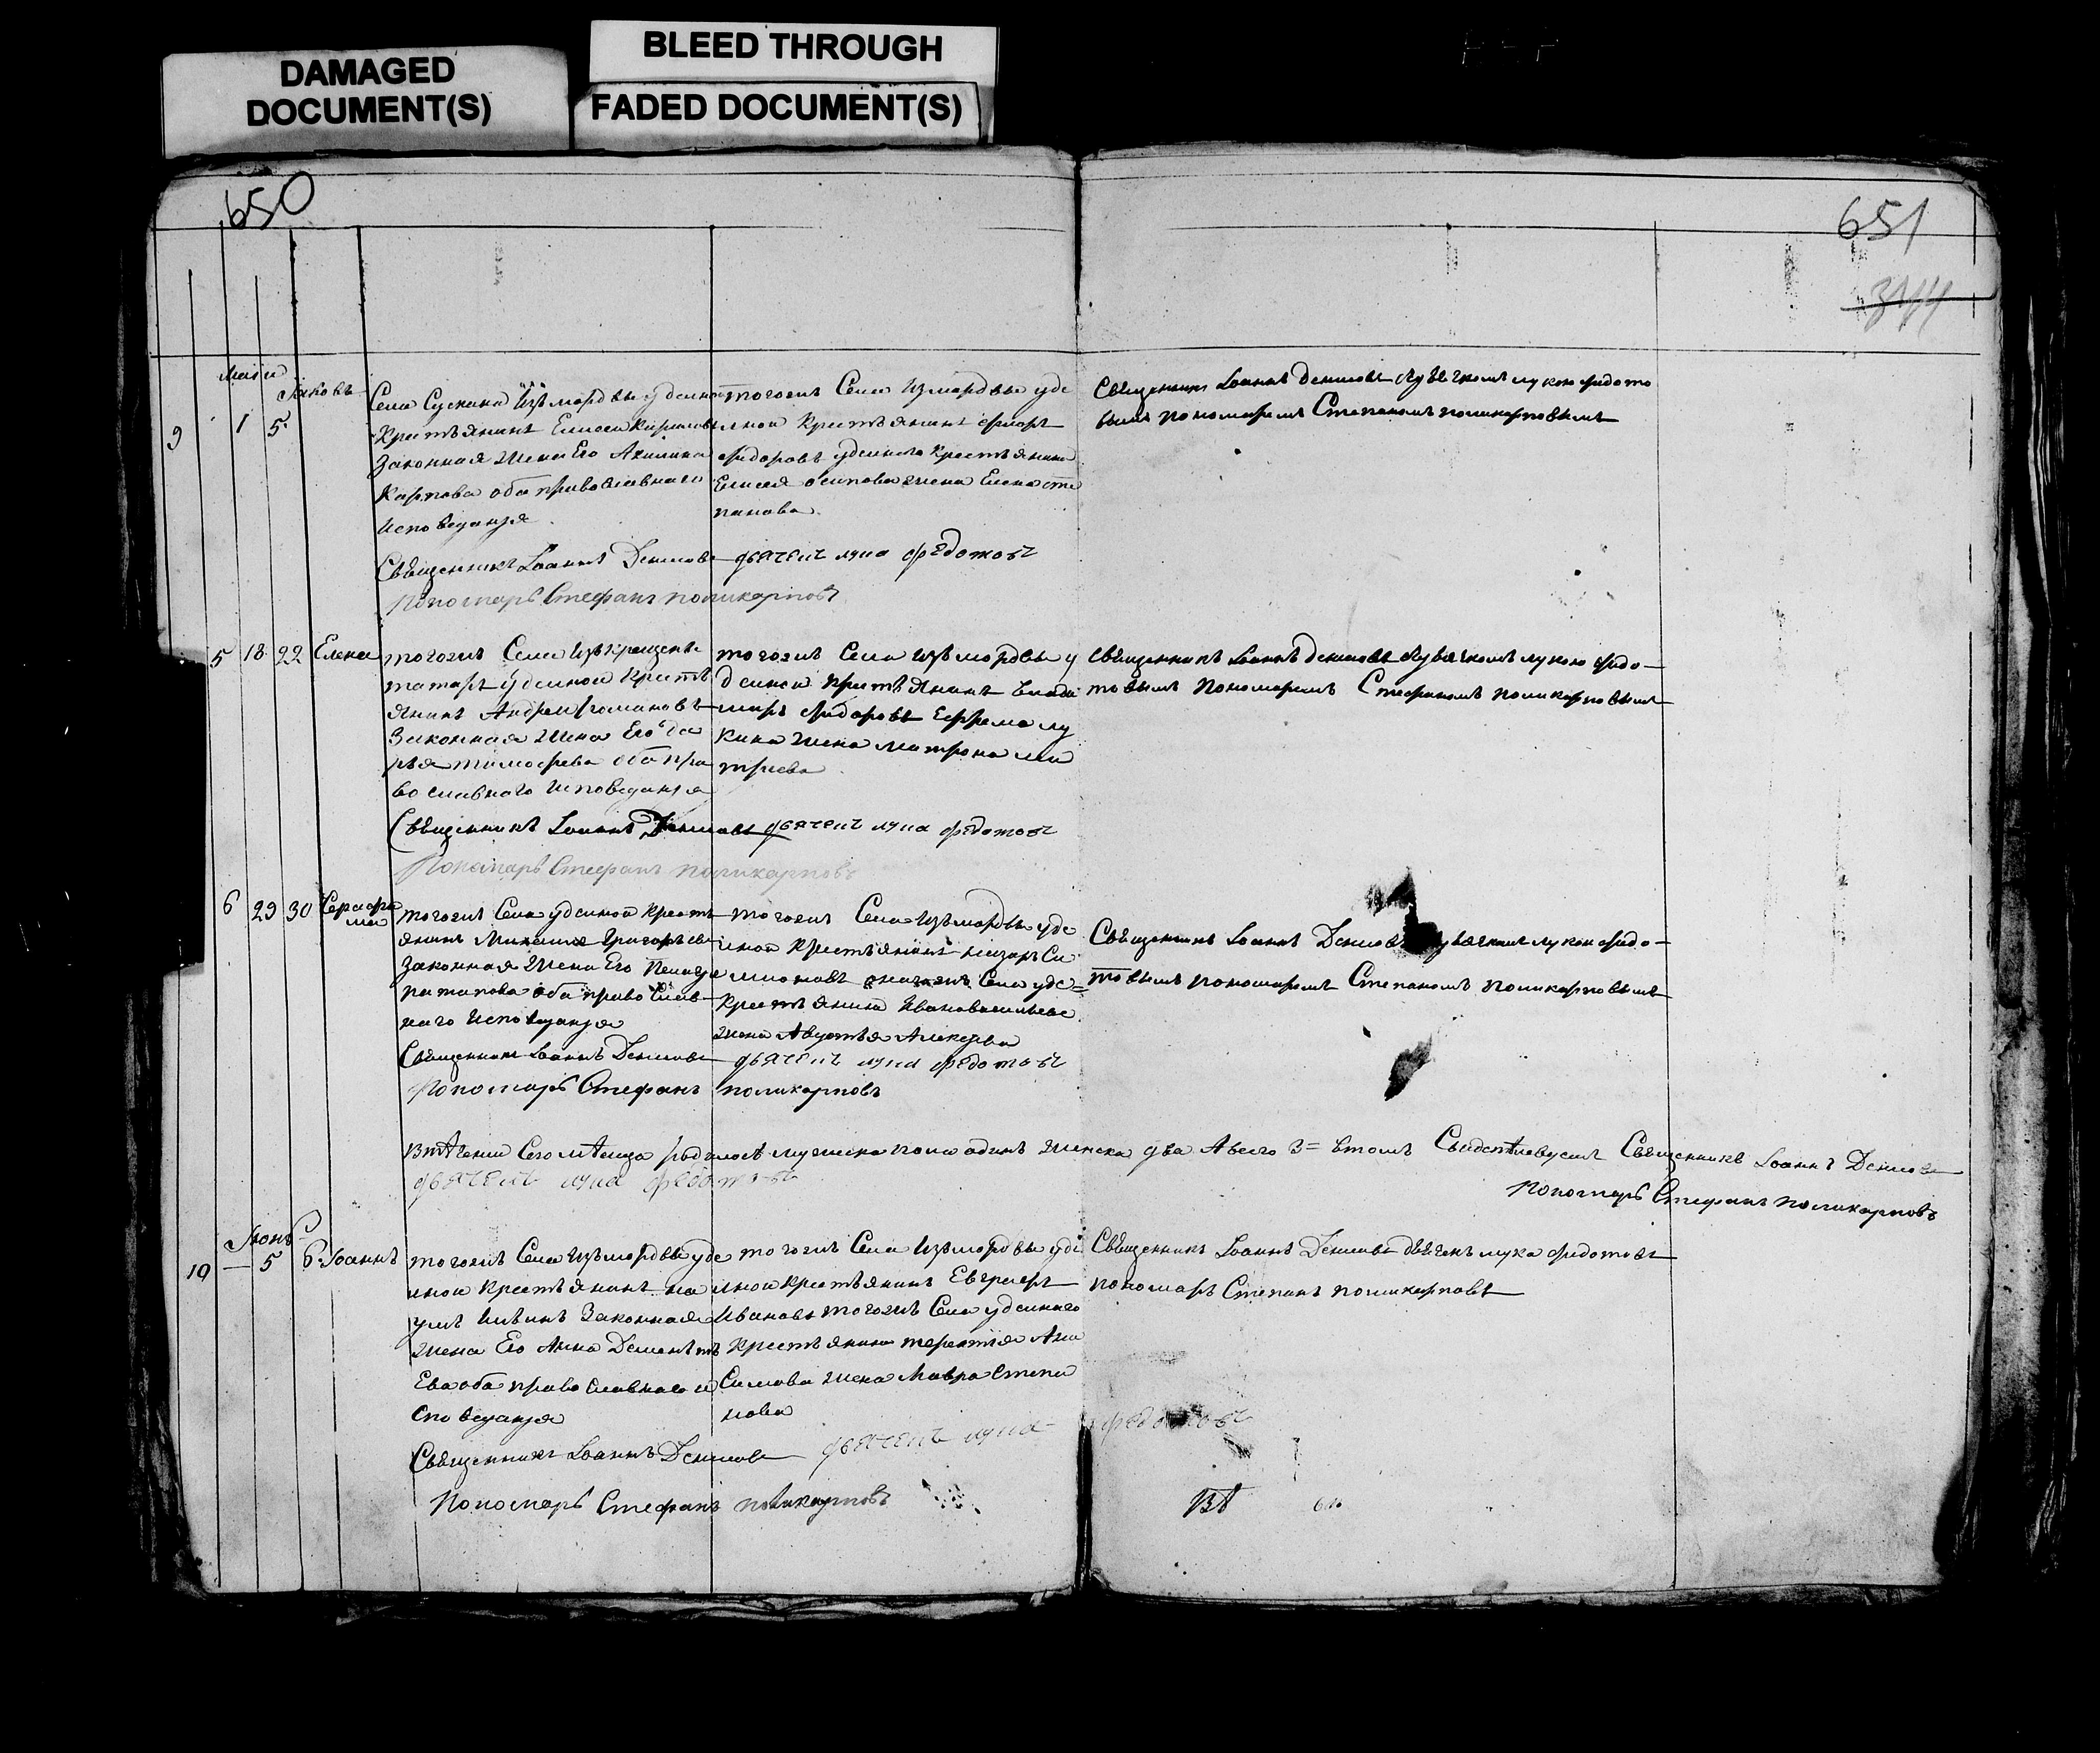 DAMAGED
DOCUMENT(S)
BLEED THROUGH
FADED DOCUMENT(S)
650
651
344
Маiя
9 1 5 Яковъ
Села Сускана Изъ мордвы удельной
Крестьянинъ Елисей Кириловъ
Законная жена Его Акилина
Карпова оба православнаго
исповеданiя
тогожъ Села Изъ мордвы уде
льной Крестьянинъ
Федоровъ удельнаго Крестьянина
Елисея осипова жена Елена сте
панова
Священникъ Iоаннъ Денисовъ дьячкомъ лукою федото
вымъ пономаремъ Степаномъ поликарповымъ
Священникъ Iоаннъ Денисовъ дьячекъ лука федотовъ
Пономарь Стефанъ поликарповъ
5 18 22 Елена
тогожъ Села Изъ крещены
татаръ удельной Кресть
янинъ Андрей
Законная жена Его да
рья тимофева оба пра
вославнаго исповеданiя
тогожъ Села изъ мордвы у
дельной крестьянинъ Влади
миръ федоровъ Ефрема лу
кина жена матрона ми
трева
Священникъ Iоаннъ денисовъ дьячкомъ лукою федо
товымъ пономаремъ Стефаномъ поликарповымъ
Священникъ Iоаннъ Денисовъ дьячекъ лука федотовъ
Пономарь Стефанъ поликарповъ
6 29 30 Серафи
ма
тогожъ Села удельной кресть
янинъ Михаила Григорьевъ
Законная жена Его Пелагея
потапова оба православ
наго исповеданiя
тогожъ Села Изъ мордвы уде
льной Крестьянинъ назаръ Си
мионовъ Села уде=
Крестьянина Ивана васильева
жена Авдотья Алексева
Священникъ Iоаннъ Денисовъ дьячкомъ лукою федо
товымъ пономаремъ Степаномъ поликарповымъ
Священникъ Iоаннъ Денисовъ дьячекъ лука федотовъ
Пономарь Стефанъ поликарповъ
Втѣченiи Сего мѣсяца родилось мужеска пола одинъ женска два Авсего 3= втомъ Свидетелсвуемъ Священникъ Iоаннъ Денисовъ
дьячекъ лука федотовъ
Пономарь Стефанъ поликарповъ
Июнь
10 — 5 6 Iоаннъ
тогожъ Села Изъ мордвы уде
льной Крестьянинъ на
умъ Законная
жена Его Анна Дементь
Ева оба православнаго и
споведанiя
тогожъ Села Изъ мордвы уде
льной Крестьянинъ Евграфъ
Ивановъ тогожъ Села удельнаго
Крестьянина терентiя Ани
Симова жена Мавра Степа
нова
Священникъ Iоаннъ Денисовъ дьячекъ лука федотовъ
пономарь Степанъ поликарповъ
Священникъ Iоаннъ Денисовъ дьячекъ лука федотовъ
Пономарь Стефанъ поликарповъ